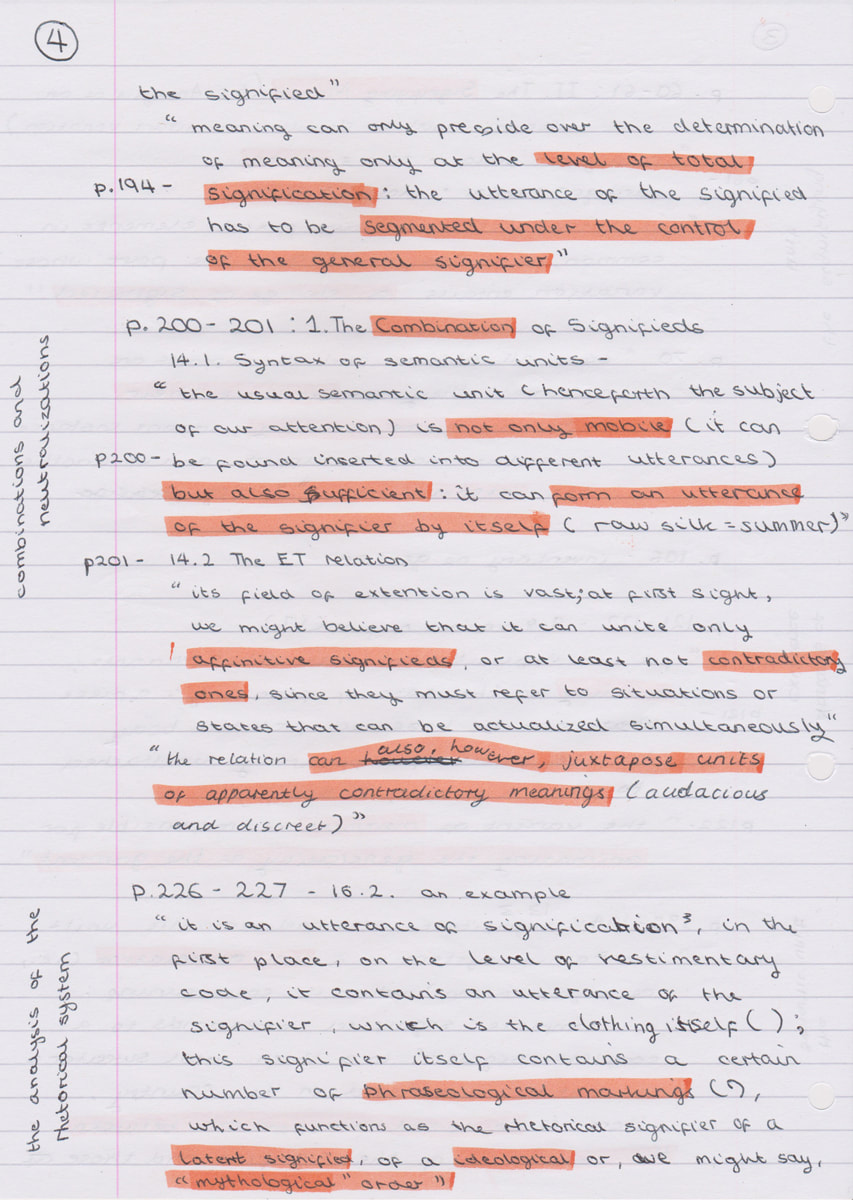 4
the signified"
" meaning can only preside over the determination
of meaning only at the level of total
p.194 - signification : the utterance of the signified
has to be segmented under the control
of the general signifier"
combinations and
neutralizations
p. 200 - 201 : 1. The Combination of Signifieds
14.1. Syntax of semantic units -
" the usual semantic unit (henceforth the subject
of our attention) is not only mobile (it can
p200 - be found inserted into different utterances)
but also sufficient : it can form an utterance
of the signifier by itself ( raw silk = summer)"
p201 - 14.2 The ET relation
" its field of extention is vast; at first sight,
we might believe that it can unite only
affinitive signifieds, or at least not contradictory
ones, since they must refer to situations or
states that can be actualized simultaneously"
" the relation can however also, however, juxtapose units
of apparently contradictory meanings (audacious
and discreet)"
the analysis of the
rhetorical system
P.226 - 227 - 16.2. an example
" it is an utterance of signification³, in the
first place, on the level of vestimentary
code, it contains an utterance of the
signifier, which is the clothing itself ( );
this signifier itself contains a certain
number of phraseological markings (?),
which functions as the rhetorical signifier of a
latent signified, of a ideological or, we might say,
"mythological" order")